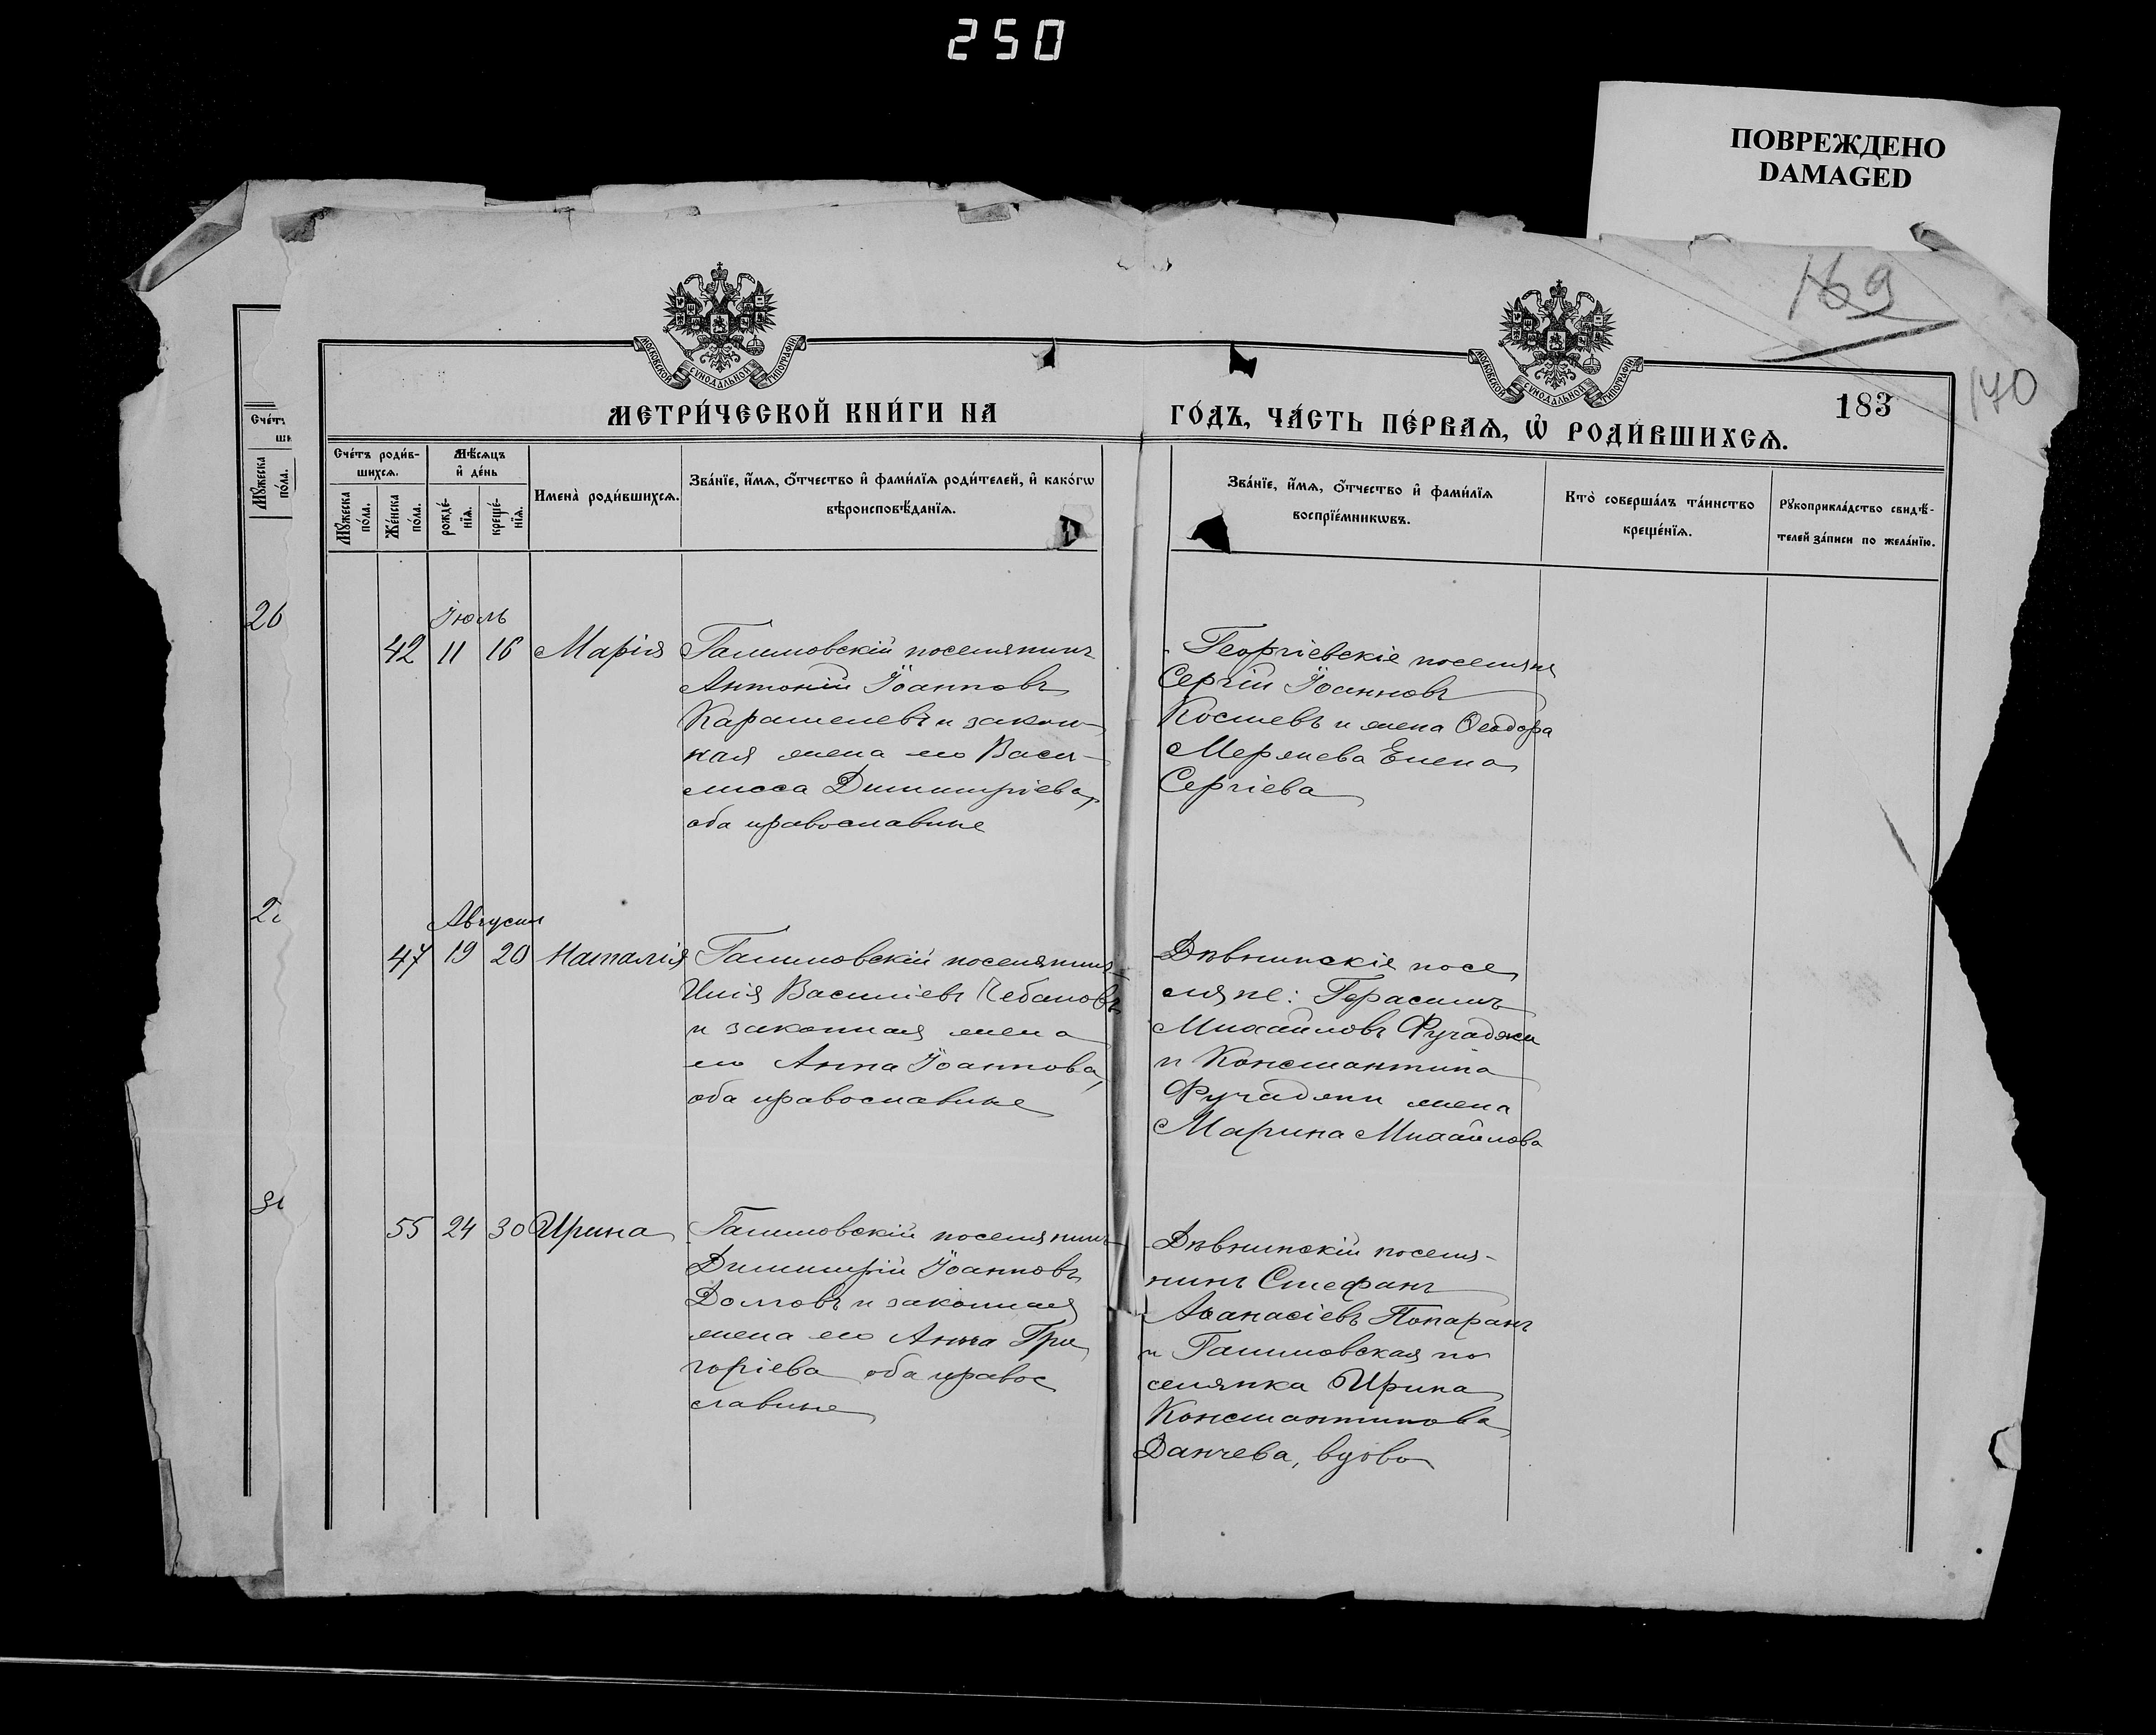 250
ПОВРЕЖДЕНО
DAMAGED
169
170
183
МОСКОВСКОЙ СѴНОДАЛЬНОЙ ТИПОГРАФІИ
МОСКОВСКОЙ СѴНОДАЛЬНОЙ ТИПОГРАФІИ
МЕТРИ́ЧЕСКОЙ КНИ́ГИ НА
ГО́ДЪ, ЧА́СТЬ ПЕ́РВАЯ, Ѡ҆ РОДИ́ВШИХСѦ.
Сче́тъ роди́в-
шихсѧ.
Мѣ́сяцъ
и҆ де́нь
Мꙋ́жеска
по́ла.
Же́нска
по́ла.
рожде́-
нїѧ.
креще́-
нїѧ.
Имена̀ роди́вшихсѧ.
Зва́нїе, и҆́мѧ, ѻ҆́тчество и҆ фами́лїѧ роди́телей, и҆ како́гѡ
вѣроисповѣ́данїѧ.
Зва́нїе, и҆́мѧ, ѻ҆́тчество и҆ фами́лїѧ
воспрїе́мникѡвъ.
Кто̀ соверша́лъ та́инство
креще́нїѧ.
Рꙋкоприкла́дство свидѣ́-
телей за́писи по жела́нїю.
Мꙋ́жеска
по́ла.
26
Іюль
42 11 16 Марія Галиловскій поселянинъ
Антоній Іоанновъ
Карамелевъ и закон-
ная жена его Васи-
лисса Димитріева,
оба православные
Георгіевскіе поселяне
Сергій Іоанновъ
Костевъ и жена Ѳеодора
Мержева Елена
Сергіева
Августъ
47 19 20 Наталія Галиловскій поселянинъ
Илія Василіевъ Чебановъ
и законная жена
его Анна Іоаннова,
оба православные
Дѣвлинскіе посе
ляне: Герасимъ
Михаиловъ Фучаджи
и Константина
Фучаджи жена
Марина Михаилова
55 24 30 Ирина Галиловскій поселянинъ
Димитрій Іоанновъ
Долговъ и законная
жена его Анна Гри
горіева оба правос
славные
Дѣвлинскій поселя-
нинъ Стефанъ
Аѳанасіевъ Попаранъ
и Галиловская по
селянка Ирина
Константинова
Данчева, вдова